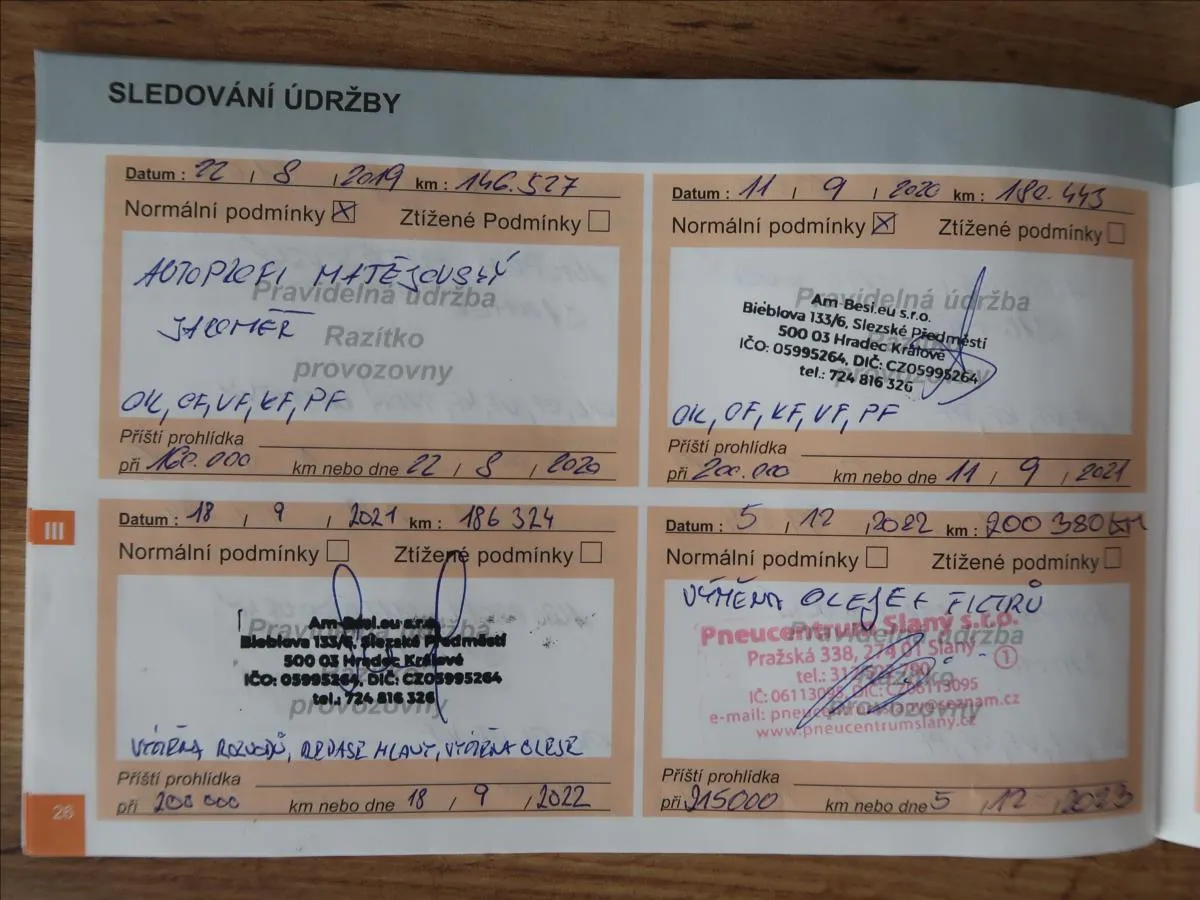 SLEDOVÁNÍ ÚDRŽBY
Datum : 22 / 8 / 2019 km : 146.527
Normálni podmínky ☒ Ztížené Podmínky ☐
AUTOPROFI MATĚJOVSKÝ
Pravidelná údržba
JAROMĚŘ
Razítko
provozovny
OK, OF, VF, KF, PF
Příští prohlídka
při 160.000 km nebo dne 22 / 8 / 2020
Datum : 11 / 9 / 2020 km : 180.443
Normální podmínky ☒ Ztížené podmínky ☐
Pravidelná údržba
Am-Besi.eu s.r.o.
Bieblova 133/6, Slezské Předměstí
500 03 Hradec Králové
IČO: 05995264, DIČ: CZ05995264
tel.: 724 816 326
provozovny
OK, OF, KF, VF, PF
Příští prohlídka
při 200.000 km nebo dne 11 / 9 / 2021
III
Datum : 18 / 9 / 2021 km : 186 324
Normální podmínky ☐ Ztížené podmínky ☐
Am-Besi.eu s.r.o.
Pravidelná údržba
Bieblova 133/6, Slezské Předměstí
500 03 Hradec Králové
IČO: 05995264, DIČ: CZ05995264
tel.: 724 816 326
provozovny
VÝMĚNA ROZVODŮ, REPASE HLAVY, VÝMĚNA OLEJE
Příští prohlídka
při 200 000 km nebo dne 18 / 9 / 2022
Datum : 5 / 12 / 2022 km : 200 380 km
Normální podmínky ☐ Ztížené podmínky ☐
VÝMĚNA OLEJE + FILTRŮ
Pneucentrum Slaný s.r.o.
Pravidelná údržba
Pražská 338, 274 01 Slaný
1
tel.:
Razítko
IČ: 06113095, DIČ: CZ06113095
provozovny
e-mail: pneucentrumslany@seznam.cz
www.pneucentrumslany.cz
Příští prohlídka
při 215000 km nebo dne 5 / 12 / 2023
26